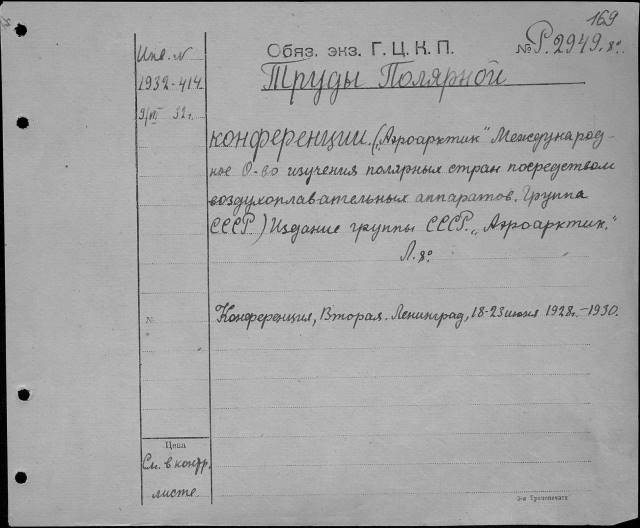 169
Обяз. экз. Г. Ц. К. П.
№ Р. 2949. 8о.
Инв. №
1932-414
9/VII 32 г.
Труды Полярной
конференции. („Аэроарктик" Международ-
ное О-во изучения полярных стран посредством
воздухоплавательных аппаратов. Группа
СССР.) Издание группы СССР. „Аэроарктик."
Л. 8о
№
Конференция, Вторая. Ленинград, 18-23 июня 1928 г. - 1930.
Цена
См. в контр.
листе.
3-я Транспечати